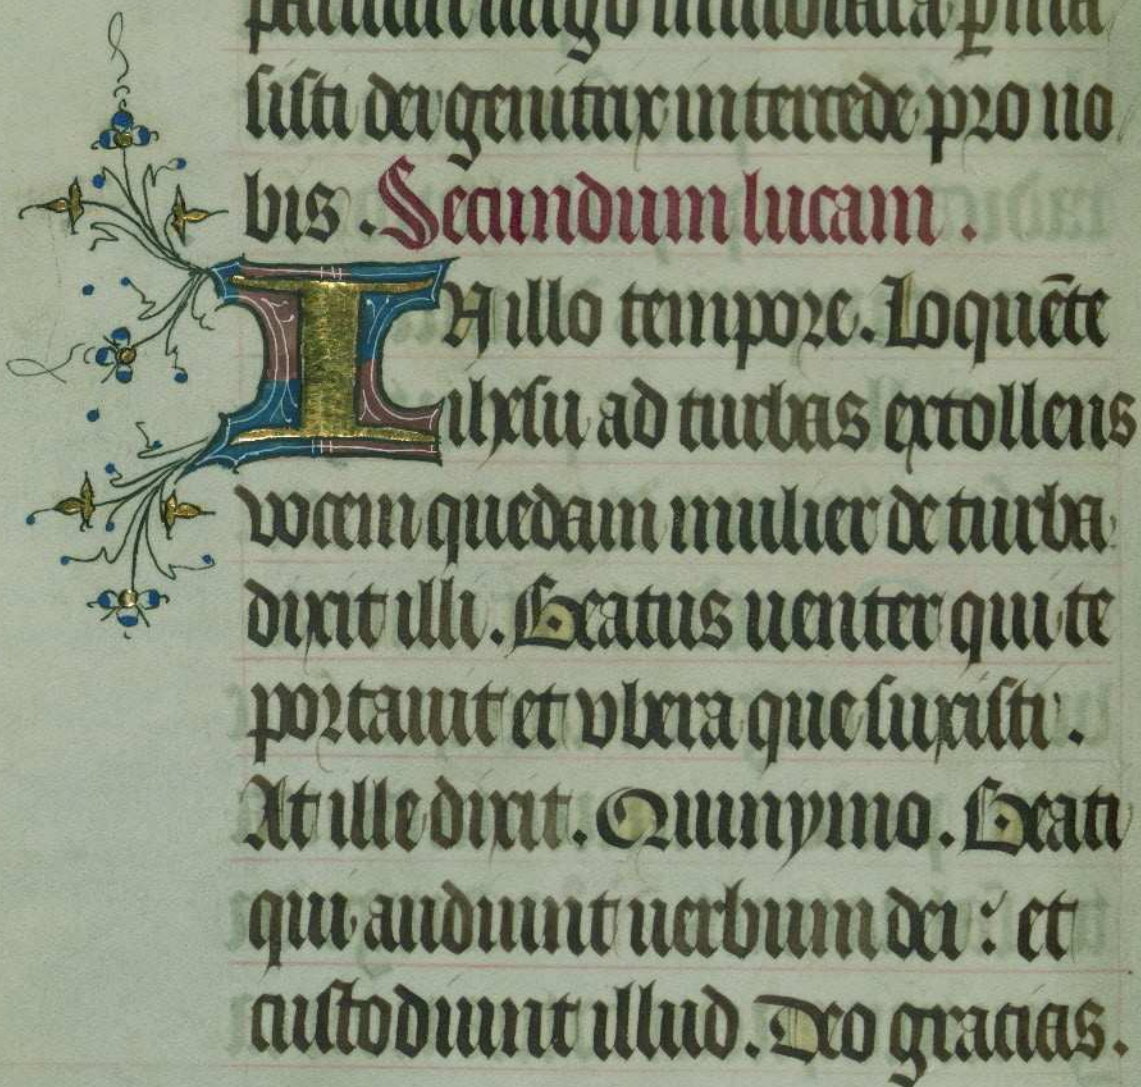 partum uirgo inuiolata pma
sisti dei genitrix intercede pro no
bis. Secundum lucam.
IN illo tempore. Loquēte
ihesu ad turbas extollens
vocem quedam mulier de turba
dixit illi. Beatus uenter qui te
portauit et vbera que suxisti.
At ille dixit. Quinymo. Beati
qui audiunt uerbum dei: et
custodiunt illud. Deo gracias.